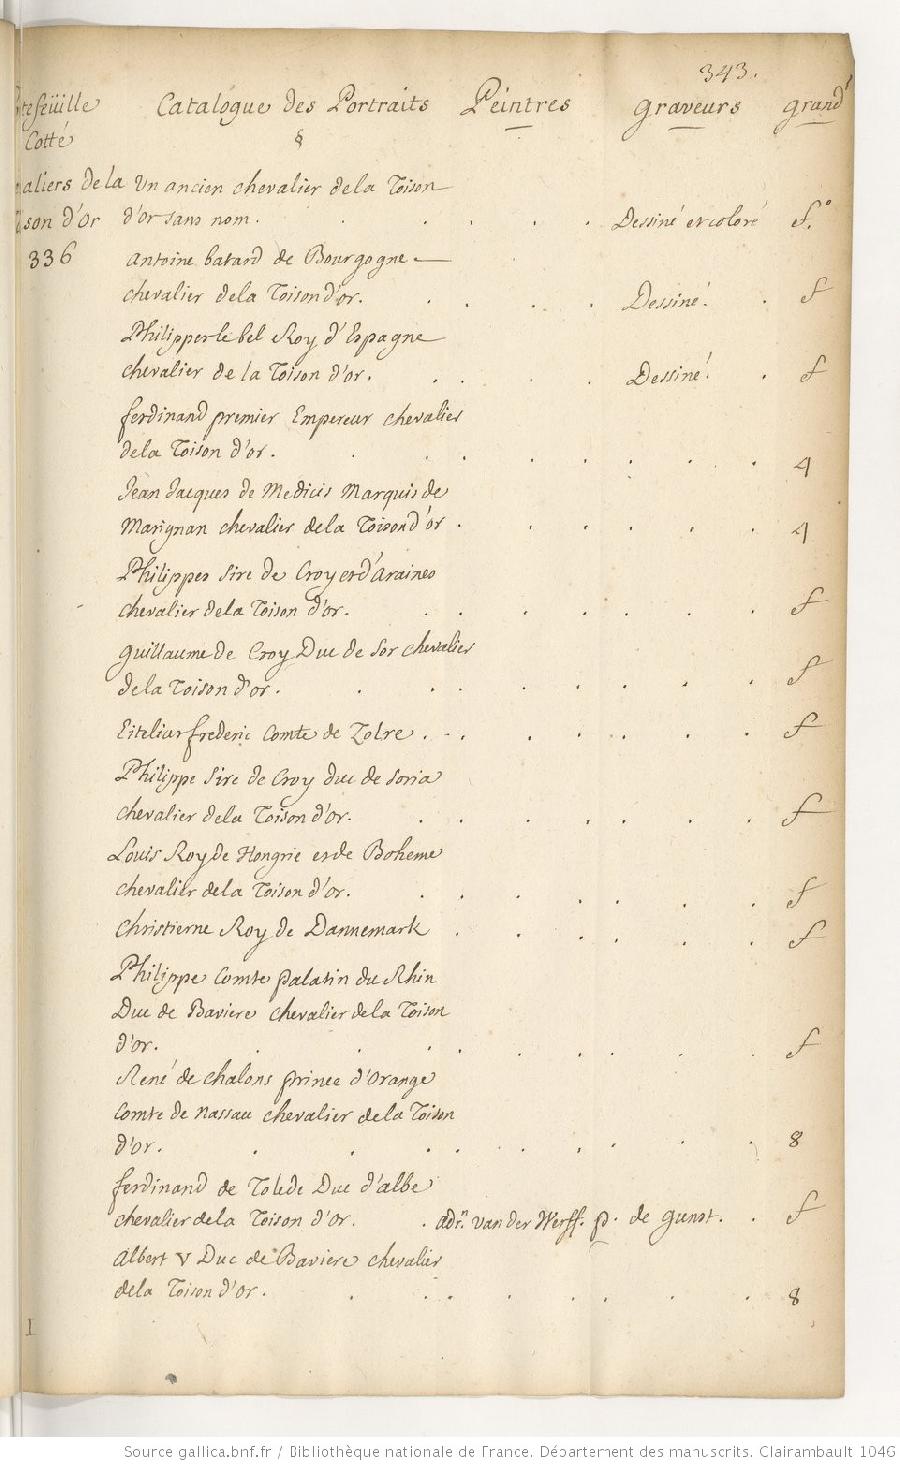 343.
tefeüille Catalogue des Portraits Peintres graveurs grand
Cotté §
aliers dela Un ancien chevalier dela Toison
son d'Or d'or sans nom. Dessiné et coloré f.°
336 Antoine batard de Bourgogne
chevalier dela Toison d'or. Dessiné. f
Philippe le bel Roy d'Espagne
chevalier de la Toison d'or. Dessiné. f
ferdinand premier Empereur chevalier
dela Toison d'or. 4
Jean Jacques de Medicis Marquis de
Marignan chevalier dela Toison d'or. 4
Philippes Sire de Croy et d'Araines
chevalier dela Toison d'or. f
guillaume de Croy Duc de Sor chevalier
dela Toison d'or. f
frederic Comte de Zolre. f
Philippe Sire de Croy duc de Soria
chevalier dela Toison d'or. f
Louis Roy de Hongrie et de Boheme
chevalier dela Toison d'or. f
Christierne Roy de Dannemark f
Philippe Comte palatin du Rhin
Duc de Baviere chevalier dela Toison
d'or. f
René de chalons prince d'Orange
Comte de Nassau chevalier dela Toison
d'or. 8
ferdinand de Tolede Duc d'albe
chevalier dela Toison d'or. adr.n van der Werff. p. de gunst. f
Albert V Duc de Baviere chevalier
dela Toison d'Or. 8
I
Source gallica.bnf.fr / Bibliothèque nationale de France. Département des manuscrits. Clairambault 1046